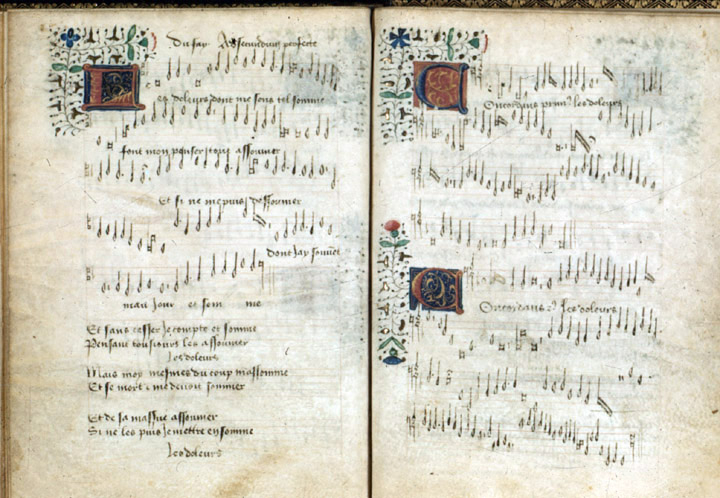 Dufay. Ad secundum perfecte
Les doleurs dont me sens tel somme
font mon penser
assommer
Et si ne me puis dessommer
Dont Jay somm̃e
main Jour et som me
Et sans cesser Je compte et somme
Pensant tousiours les assommer
Les doleurs
Mais moy mesmes du coup massomme
Et se mort
me devoit sommer
Et de sa massue assommer
Si ne les puis Je mettre en somme
Les doleurs
Concordans prim⁹ les doleurs
Concordans 2⁹ Les doleurs